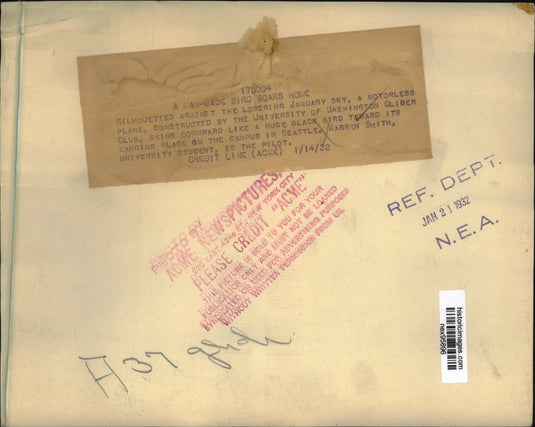 175004
A MAN-MADE BIRD SOARS HOME
SILHOUETTED AGAINST THE LOWERING JANUARY SKY, A MOTORLESS
PLANE, CONSTRUCTED BY THE UNIVERSITY OF WASHINGTON GLIDER
CLUB, SKIMS DOWNWARD LIKE A HUGE BLACK BIRD TOWARD ITS
LANDING PLACE ON THE CAMPUS IN SEATTLE. WARREN SMITH,
UNIVERSITY STUDENT, IS THE PILOT.
CREDIT LINE (ACME) 1/14/32
PHOTO BY
ACME NEWSPICTURES,
220 EAST 42nd ST. NEW YORK CITY
PLEASE CREDIT "ACME"
THIS PICTURE IS SOLD TO YOU FOR YOUR
PUBLICATION ONLY AND MUST NOT BE LOANED
OR USED FOR ADVERTISING PURPOSES
WITHOUT WRITTEN PERMISSION FROM US.
REF. DEPT.
JAN 21 1932
N.E.A.
A 37
historicimages.com
nex95896